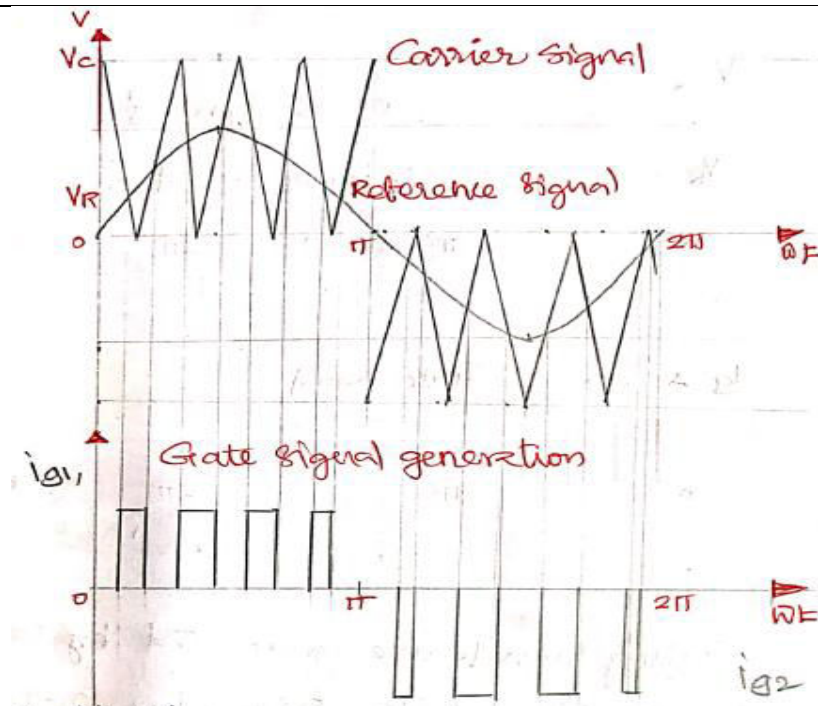 V
Vc
Carrier signal
VR
Reference signal
0
π
2π
ωt
Gate signal generation
ig1,
0
π
2π
ωt
ig2